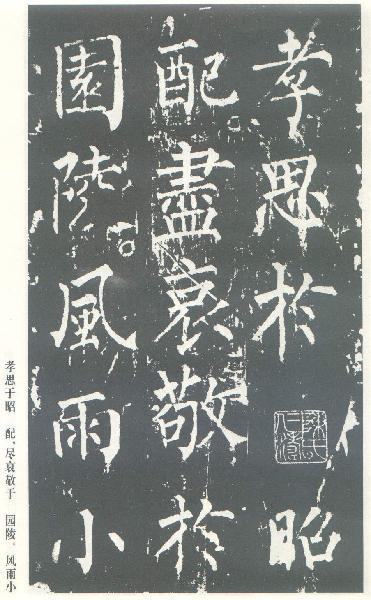 孝思於昭
配盡哀敬於
園陵風雨小
孝思于昭　配，尽哀敬于　园陵。风雨小